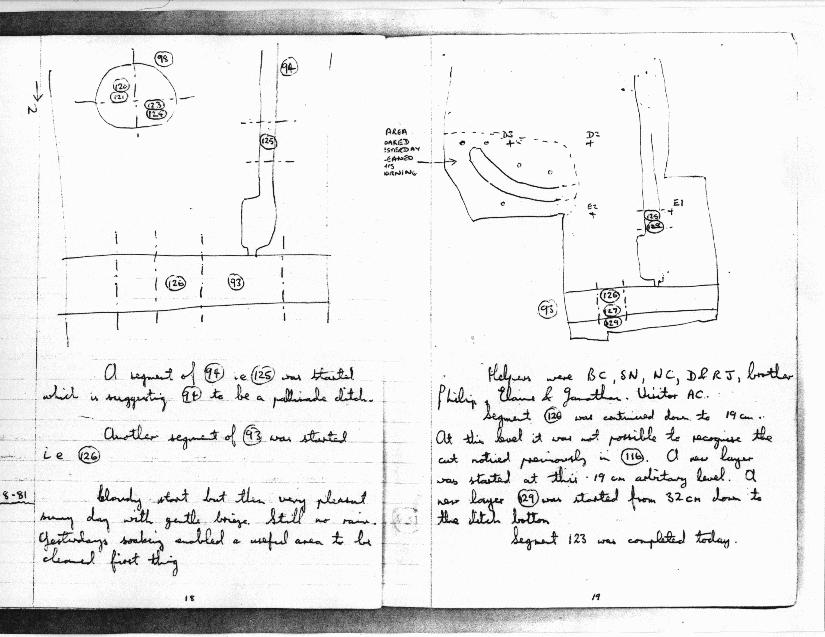 98
94
120
121
123
124
125
N
126
93
A segment of 94 i.e 125 was started
which is suggesting 94 to be a pallisade ditch.
Another segment of 93 was started
i e 126
8-81
Cloudy start but then very pleasant
sunny day with gentle breeze. Still no rain.
Yesterdays soaking enabled a useful area to be
cleaned first thing
18
AREA
OARED
ESTERDAY
LEANED
HIS
ORNING
D3
D2
E2
E1
125
128
126
127
129
93
Helpers were BC, SN, NC, D&RJ, brother
Philip, Elaine & Jonathan. Visitor AC.
Segment 120 was continued down to 19cm.
At this level it was not possible to recognise the
cut noticed previously in 116. A new layer
was started at this 19 cm arbitary level. A
new layer 129 was started from 32cm down to
the ditch bottom
Segment 123 was completed today.
19